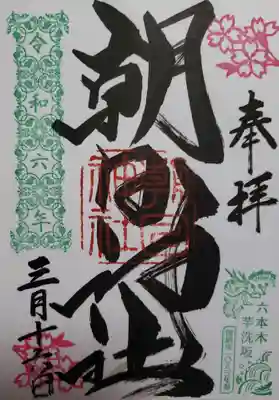 奉拝
六本木
芋洗坂
朝日神社
朝日神社
令和六年
三月十六日